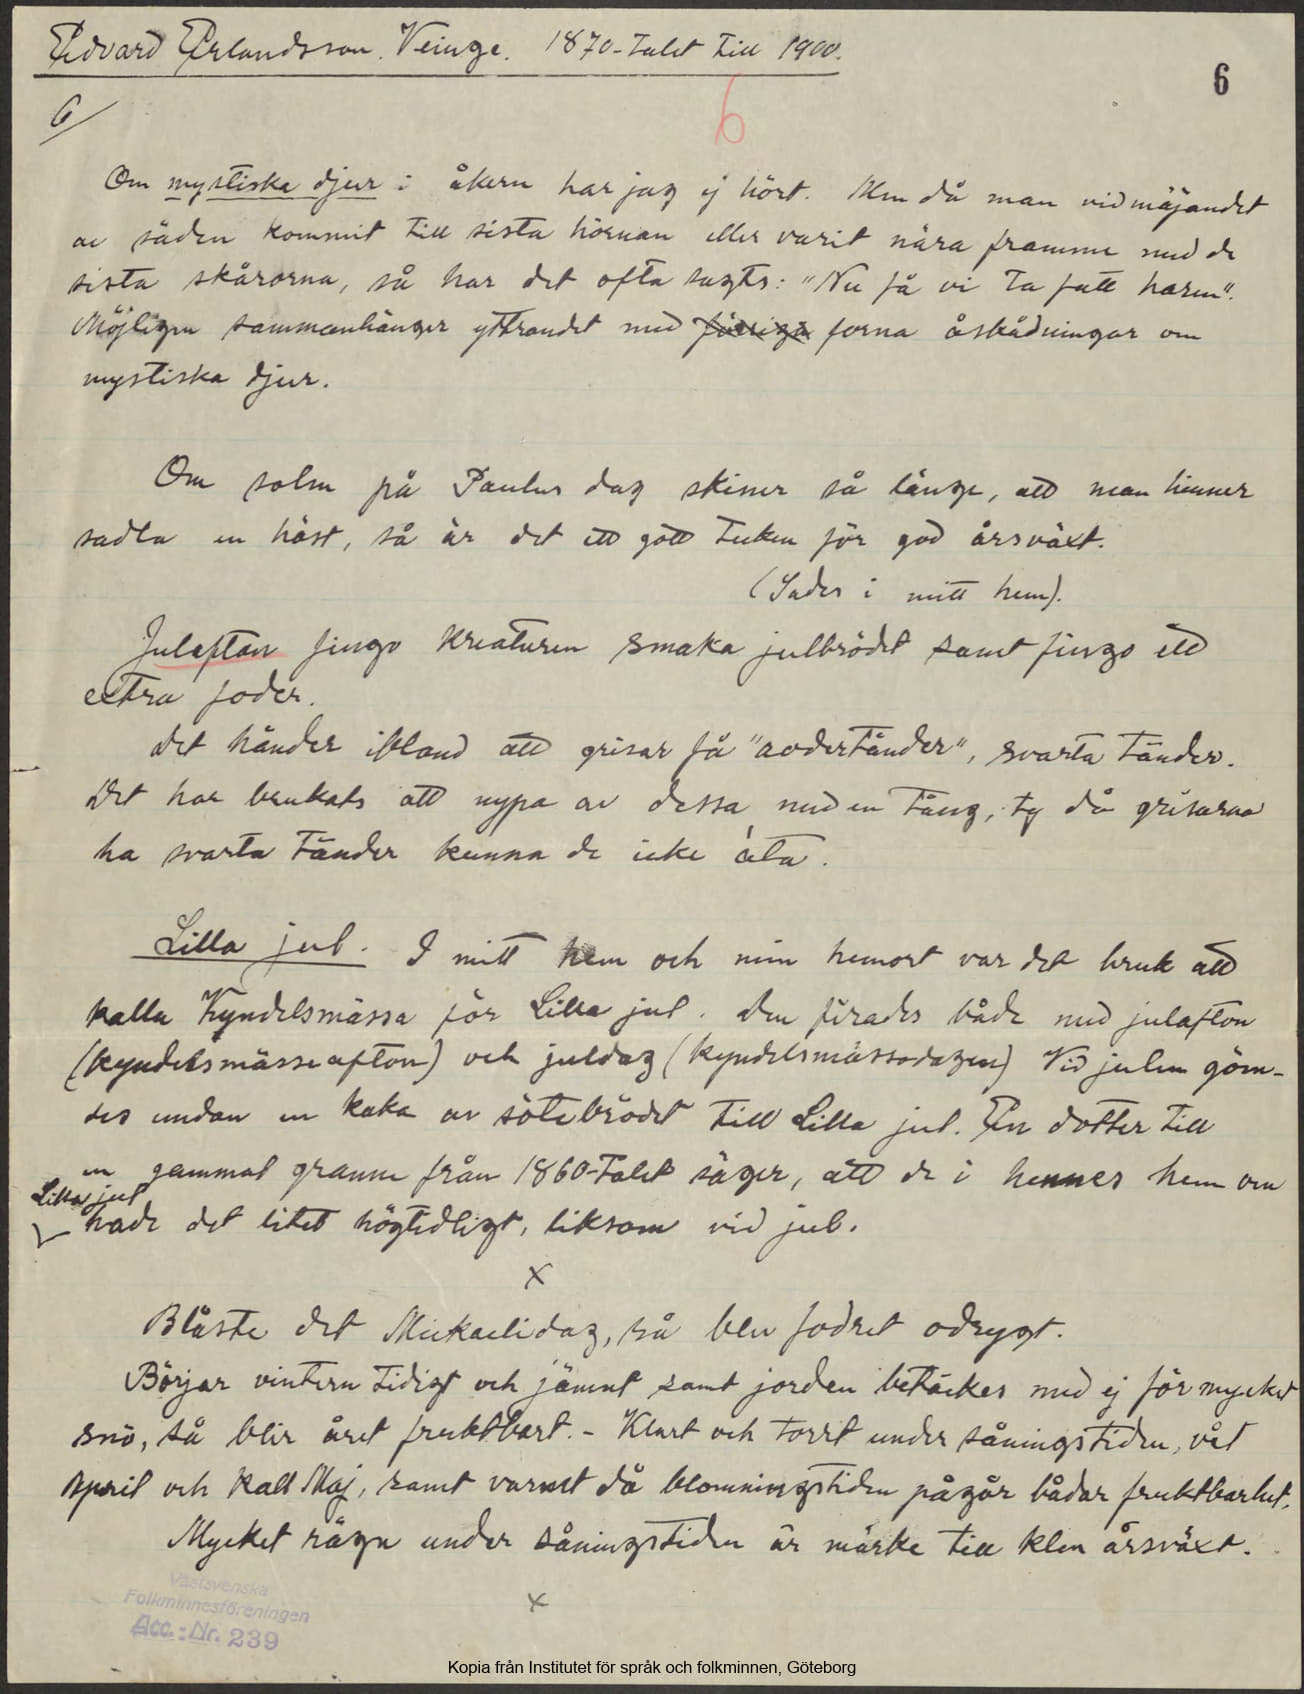 Edvard Erlandsson. Veinge. 1870-talet till 1900.
6
6/
6
Om mystiska djur i åkern har jag ej hört. Men då man vid mäjandet
av säden kommit till sista hörnan eller varit nära framme med de
sista skårorna, så har det ofta sagts: "Nu få vi ta fatt haren".
Möjligen sammanhänger yttrandet med forna åskådningar om
mystiska djur.
Om solen på Paulus dag skiner så länge, att man hinner
sadla en häst, så är det ett gott tecken för god årsväxt.
(Sades i mitt hem).
Julaftan fingo kreaturen smaka julbrödet samt fingo ett
extra foder.
Det händer ibland att grisar få "aodertänder", svarta tänder.
Det har brukats att nypa av dessa med en tång, ty då grisarna
ha svarta tänder kunna de icke äta.
Lilla jul. I mitt hem och min hemort var det bruk att
kalla Kyndelsmässa för Lilla jul. Den firades både med julafton
(kyndelsmässeafton) och juldag (kyndelsmässodagen) Vid julen göm-
des undan en kaka av sötebrödet till Lilla jul. En dotter till
en gammal granne från 1860-talet säger, att de i hennes hem om
Lilla jul
hade det litet högtidligt, liksom vid jul.
x
Blåste det Mickaelidag, så blev fodret odrygt.
Börjar vintern tidigt och jämnt samt jorden betäckes med ej för mycket
snö, så blir året fruktbart. - Klart och torrt under såningstiden, våt
April och kall Maj, samt varmt då blomningstiden pågår bådar fruktbarhet.
Mycket rägn under såningstiden är märke till klen årsväxt.
x
Västsvenska
Folkminnesföreningen
Acc.:Nr. 239
Kopia från Institutet för språk och folkminnen, Göteborg